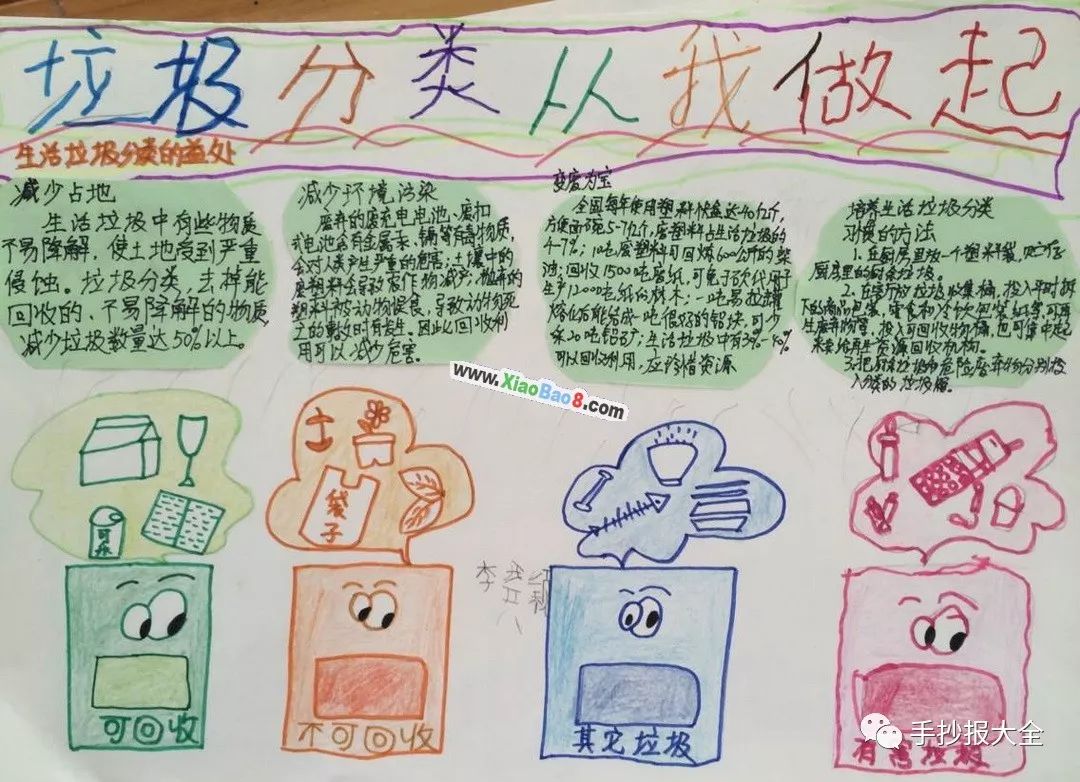 垃圾分类从我做起
生活垃圾分类的益处
减少占地
生活垃圾中有些物质
不易降解，使土地受到严重
侵蚀。垃圾分类，去掉能
回收的、不易降解的物质
减少垃圾数量达50%以上。
减少环境污染
废弃的废充电电池、废扣
式电池含有金属汞、镉等有毒物质，
会对人类产生严重的危害；土壤中的
废塑料会导致农作物减产；抛弃的
塑料被动物误食，导致动物死
亡的事故时有发生。因此回收利
用可以减少危害。
变废为宝
全国每年使用塑料快餐盒达40亿斤，
方便面碗5-7亿斤，废塑料占生活垃圾的
4-7%；10吨废塑料可回炼600公斤的柴
油；回收1500吨废纸，可免于砍伐用于
生产12000吨纸的林木；一吨易拉罐
熔化后能结成一吨很好的铝块，可少
采20吨铝矿；生活垃圾中有30%-40%
可以回收利用，应珍惜资源
培养生活垃圾分类
习惯的方法
1.在厨房里放一个塑料袋，
厨房里的厨余垃圾。
生废弃物等，投入可回收物桶，也可集中起
来卖给再生资源回收机构。
入分类的垃圾桶。
www.XiaoBao8.com
袋
子
可乐
李
可回收
不可回收
其它垃圾
有害垃圾
手抄报大全